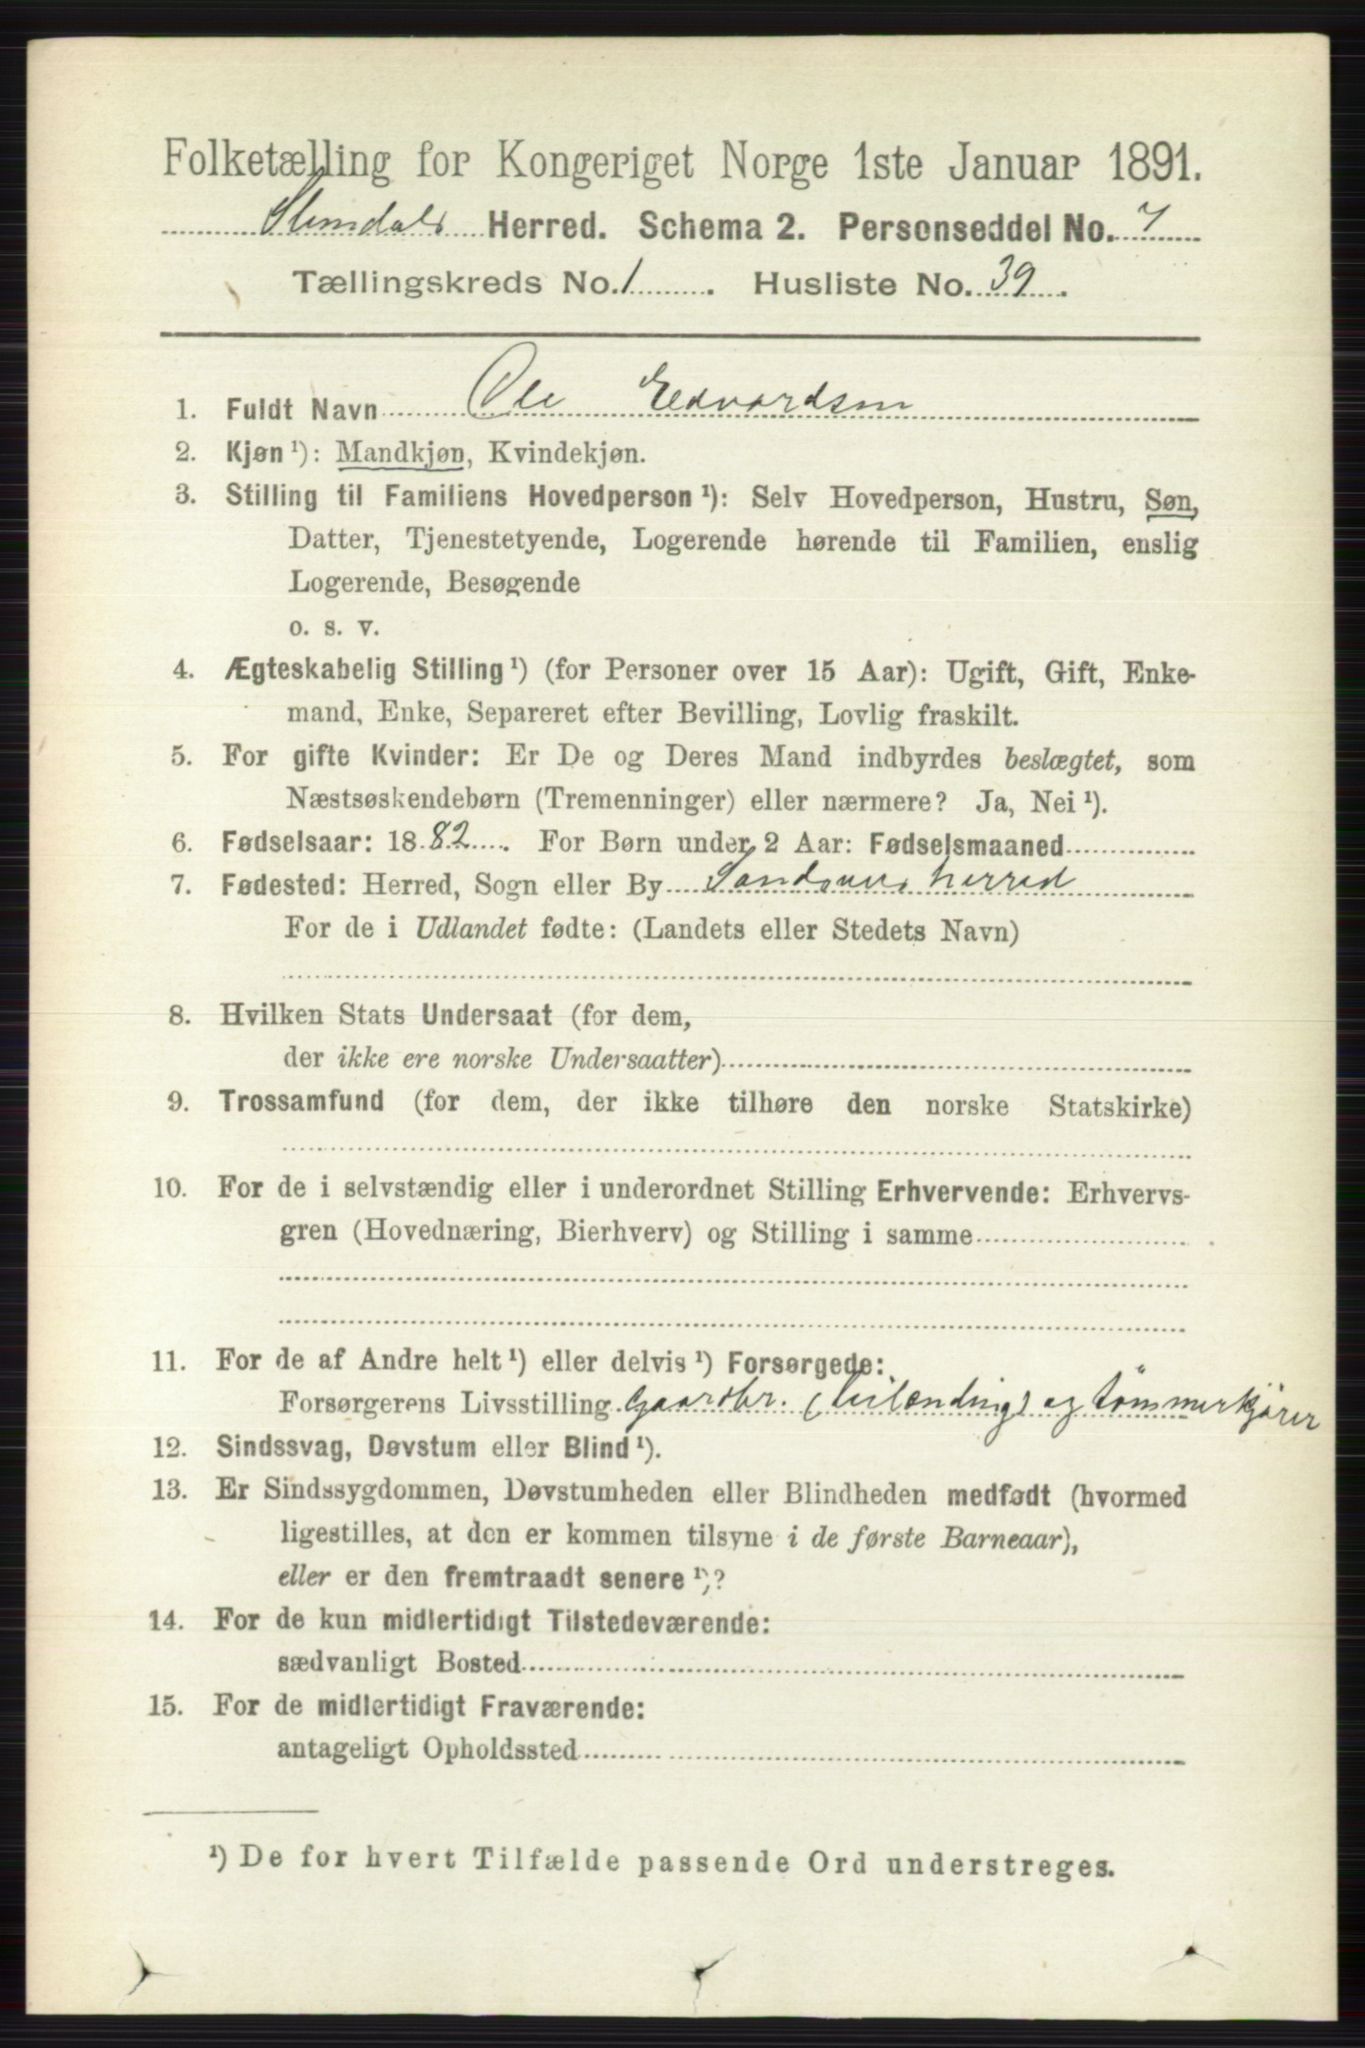 Folketælling for Kongeriget Norge 1ste Januar 1891.
Slemdals Herred. Schema 2. Personseddel No. 7
Tællingskreds No. 1 . Husliste No. 39 .
1. Fuldt Navn Ole Edvardsen
2. Kjøn ¹): Mandkjøn, Kvindekjøn.
3. Stilling til Familiens Hovedperson ¹): Selv Hovedperson, Hustru, Søn,
Datter, Tjenestetyende, Logerende hørende til Familien, enslig
Logerende, Besøgende
o. s. v.
4. Ægteskabelig Stilling ¹) (for Personer over 15 Aar): Ugift, Gift, Enke-
mand, Enke, Separeret efter Bevilling, Lovlig fraskilt.
5. For gifte Kvinder: Er De og Deres Mand indbyrdes beslægtet, som
Næstsøskendebørn (Tremenninger) eller nærmere? Ja, Nei ¹).
6. Fødselsaar: 1882 . For Børn under 2 Aar: Fødselsmaaned
7. Fødested: Herred, Sogn eller By Sandsvers herred
For de i Udlandet fødte: (Landets eller Stedets Navn)
8. Hvilken Stats Undersaat (for dem,
der ikke ere norske Undersaatter)
9. Trossamfund (for dem, der ikke tilhøre den norske Statskirke)
10. For de i selvstændig eller i underordnet Stilling Erhvervende: Erhvervs-
gren (Hovednæring, Bierhverv) og Stilling i samme
11. For de af Andre helt ¹) eller delvis ¹) Forsørgede:
Forsørgerens Livsstilling Gaardbr. (Leilænding) og tømmerkjører
12. Sindssvag, Døvstum eller Blind ¹).
13. Er Sindssygdommen, Døvstumheden eller Blindheden medfødt (hvormed
ligestilles, at den er kommen tilsyne i de første Barneaar),
eller er den fremtraadt senere ¹)?
14. For de kun midlertidigt Tilstedeværende:
sædvanligt Bosted
15. For de midlertidigt Fraværende:
antageligt Opholdssted
¹) De for hvert Tilfælde passende Ord understreges.